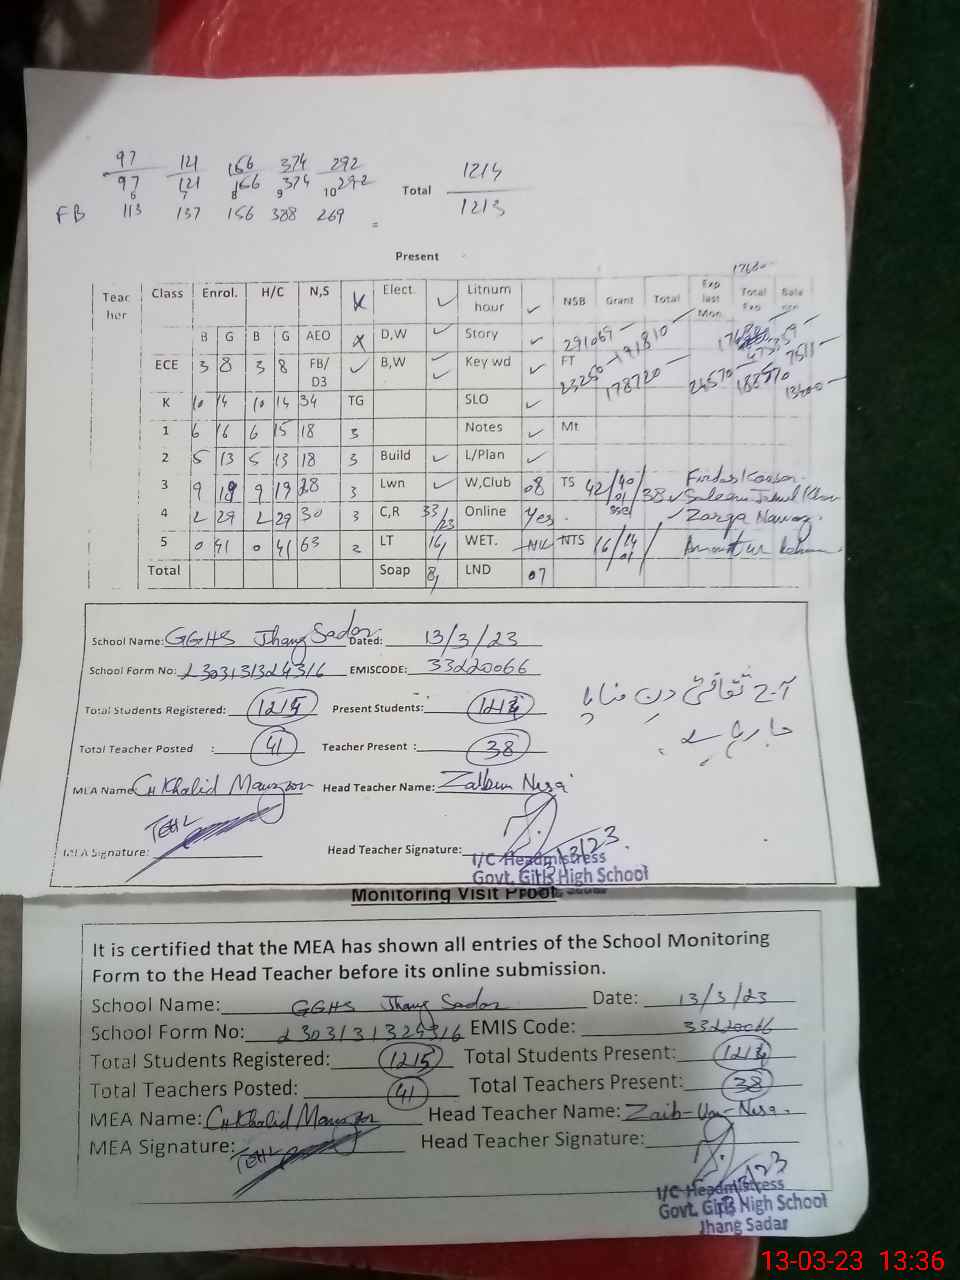 97 121 166 374 292
97 121 166 374 292 Total 1214
6 7 8 9 10 1213
FB 113 137 156 388 269 =
Present
Teac her Class Enrol. H/C N,S Elect. Litnum hour NSB Grant Total Exp last Mon. Total Exp
B G B G AEO D,W Story 291069
ECE 3 8 3 8 FB/ D3 B,W Key wd FT 23250 178720 24570
K 10 14 10 14 34 TG SLO
1 6 16 6 15 18 3 Notes Mt
2 5 13 5 13 18 3 Build L/Plan
3 9 19 9 19 28 3 Lwn W,Club 08 TS 42/40 01 /38
4 2 29 2 29 30 3 C,R 33/23 Online Yes. Zarqa Nawaz.
5 0 41 0 41 63 2 LT 16, WET. NTS 16/14 01
Total Soap 8, LND 07
School Name: GGHS Jhang Sadar. Dated: 13/3/23
School Form No: EMISCODE: 33220066
Total Students Registered: 1215 Present Students: 1214
Total Teacher Posted : 41 Teacher Present : 38
آج ثقافتی دن منایا
جا رہا ہے۔
MEA Name: CH Khalid Head Teacher Name:
MEA Signature: Head Teacher Signature:
I/C Headmistress
Govt. Girls High School
Monitoring Visit Proof
It is certified that the MEA has shown all entries of the School Monitoring
Form to the Head Teacher before its online submission.
School Name: GGHS Jhang Sadar Date: 13/3/23
School Form No: EMIS Code: 33220066
Total Students Registered: 1215 Total Students Present: 1214
Total Teachers Posted: 41 Total Teachers Present: 38
MEA Name: CH Khalid Head Teacher Name: Zaib-Un-Nisa.
MEA Signature: Head Teacher Signature:
I/C Headmistress
Govt. Girls High School
Jhang Sadar
13-03-23 13:36